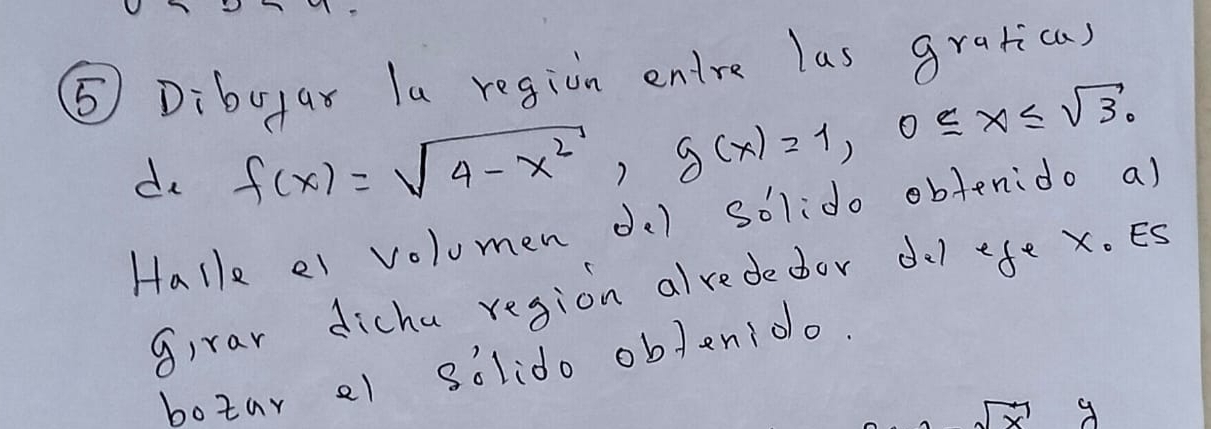 ⑤ Dibujar la región entre las graficas
de f(x) = √4-x², g(x) = 1, 0 ≤ x ≤ √3.
Halle el volumen del sólido obtenido al
girar dicha región alrededor del eje x. ES
bozar el sólido obtenido.
√x y